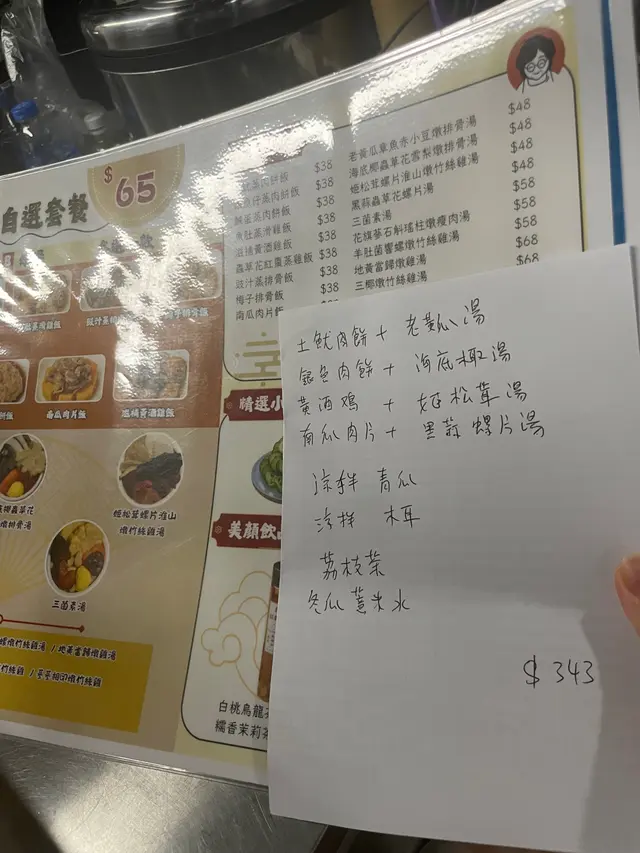 $65
自選套餐
南瓜肉片飯
姬松茸螺片淮山
燉竹絲雞湯
三菌素湯
$38
$38
$38
$38
$38
$38
$38
$38
蟲草花紅棗蒸雞飯
豉汁蒸排骨飯
梅子排骨飯
南瓜肉片飯
老黃瓜章魚赤小豆燉排骨湯 $48
海底椰蟲草花雪梨燉排骨湯 $48
姬松茸螺片淮山燉竹絲雞湯 $48
黑蒜蟲草花螺片湯 $48
三菌素湯 $58
花旗蔘石斛瑤柱燉瘦肉湯 $58
羊肚菌響螺燉竹絲雞湯 $68
地黃當歸燉雞湯 $68
三椰燉竹絲雞湯
精選小
美顏飲品
白桃烏龍
糯香茉莉茶
土魷肉餅 + 老黃瓜湯
銀魚肉餅 + 海底椰湯
黃酒鸡 + 姬松茸湯
南瓜肉片 + 黑蒜螺片湯
涼拌 青瓜
涼拌 木耳
荔枝茶
冬瓜薏米水
$343